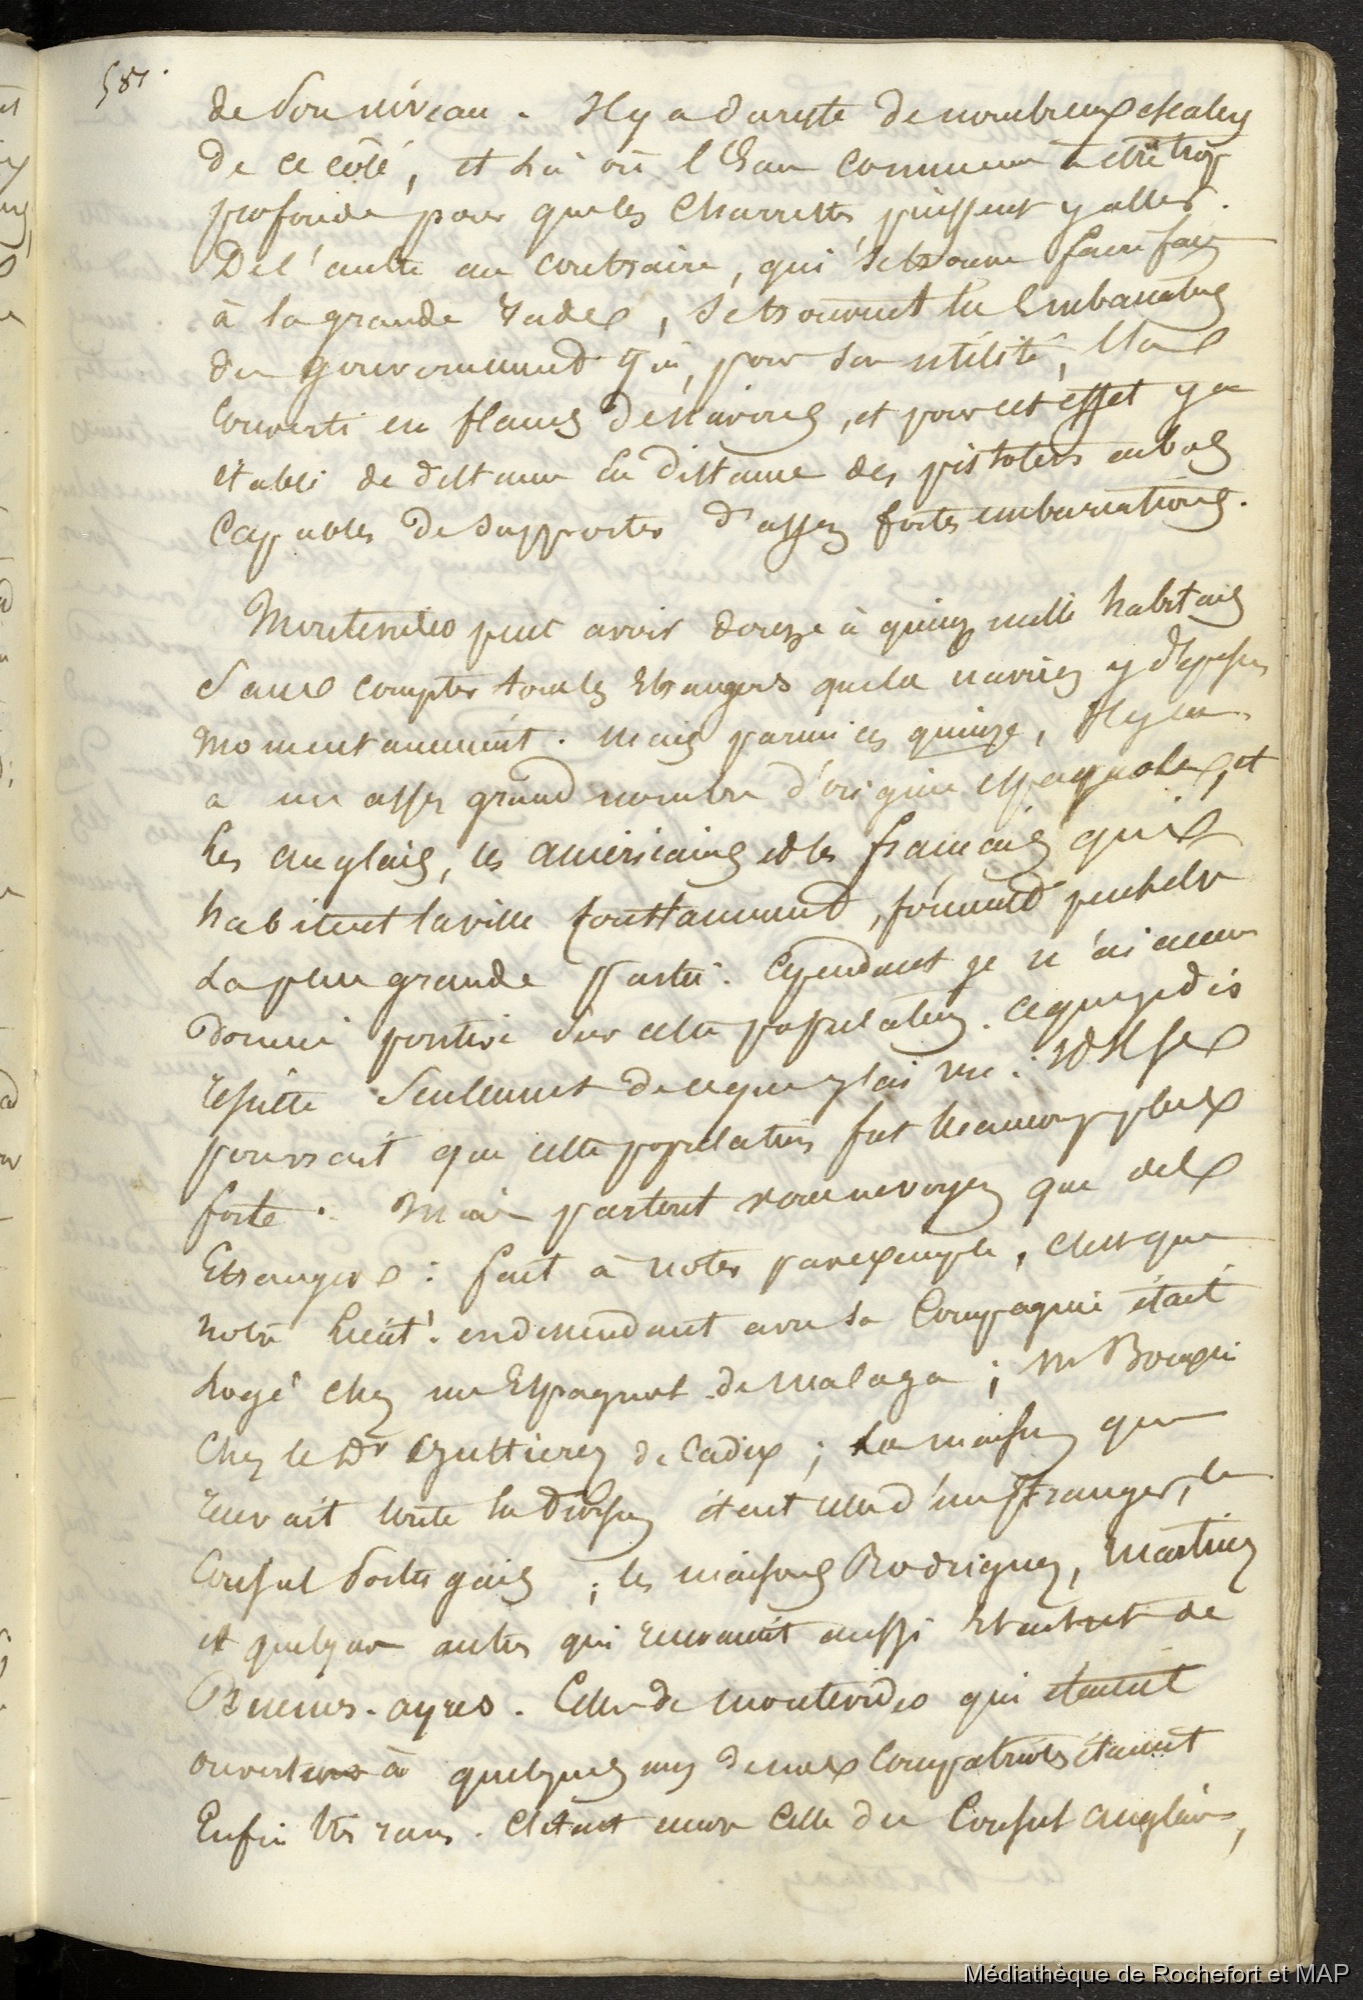 581.
de son niveau. Il y a du reste de nombreuses cales
de ce côté, et là où l'Eau commence à être trop
profonde pour que les Charrettes puissent y aller.
De l'autre au contraire, qui se trouve faire face
à la grande rade, se trouvent les Embarcadères
du gouvernement qui, pour son utilité, l'a
converti en flancs de navires, et pour cet effet y a
établi de distance en distance des pistolets en bois
Capables de supporter d'assez fortes embarcations.
Montevideo peut avoir douze à quinze mille habitans
sans compter tous les Etrangers que les navires y déposent
momentanément. Mais parmi ces quinze, Il y en
a un assez grand nombre d'origine espagnole, et
les anglais, les américains et les français qui
habitent la ville constamment, forment peut-être
la plus grande partie. Cependant je n'ai aucune
donnée positive sur cette population. ce que je dis
résulte seulement de ce que j'ai vu : et Il se
pourrait que cette population fut beaucoup plus
forte. Mais partout vous ne voyez que des
Etrangers : fait à noter par exemple, c'est que
notre lieut.t en descendant avec sa Compagnie était
logé chez un Espagnol de Malaga ; Mr
chez le Dr Guttierez de Cadix ; La maison que
recevait toute la division était celle d'un Etranger, le
Consul Portugais ; les maisons Rodriguez, Martinez
et quelques autres qui recevaient aussi étaient de
Buenos-ayres. Celles de Montevideo qui étaient
ouvertes à quelques uns de nos Compatriotes étaient
Enfin très rares. C'était encore celle du Consul anglais,
Médiathèque de Rochefort et MAP